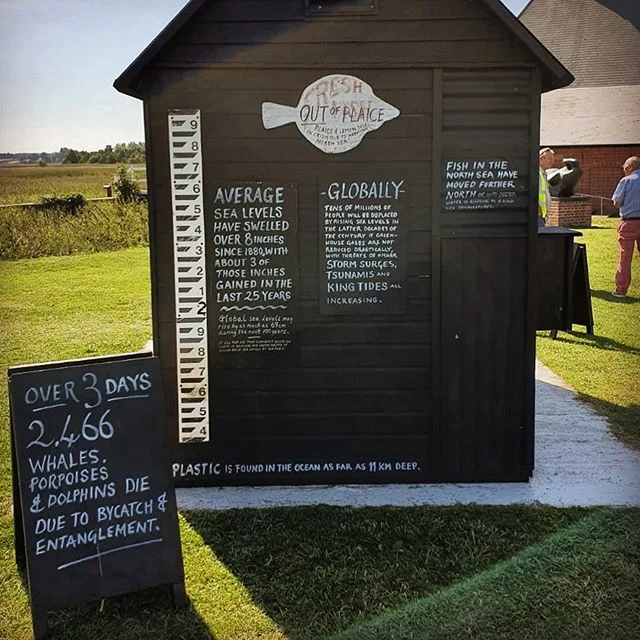 FRESH
OUT OF PLAICE
PLAICE & LEMON SOLE
IN CRISIS DUE TO WARMING
NORTH SEA
9
8
7
6
5
4
3
2
9
8
7
6
5
4
AVERAGE
SEA LEVELS
HAVE SWELLED
OVER 8 INCHES
SINCE 1880, WITH
ABOUT 3 OF
THOSE INCHES
GAINED IN THE
LAST 25 YEARS
Global sea levels may
rise by as much as 69cm
during the next 100 years.
-GLOBALLY-
TENS OF MILLIONS OF
PEOPLE WILL BE DISPLACED
BY RISING SEA LEVELS IN
THE LATTER DECADES OF
THE CENTURY IF GREEN-
HOUSE GASES ARE NOT
REDUCED DRASTICALLY,
WITH THREATS OF HIGHER
STORM SURGES,
TSUNAMIS AND
KING TIDES ALL
INCREASING.
FISH IN THE
NORTH SEA HAVE
MOVED FURTHER
NORTH OR INTO DEEPER
WATER IN RESPONSE TO RISING
SEA TEMPERATURES.
PLASTIC IS FOUND IN THE OCEAN AS FAR AS 11 KM DEEP.
OVER 3 DAYS
2,466
WHALES.
PORPOISES
& DOLPHINS DIE
DUE TO BYCATCH &
ENTANGLEMENT.